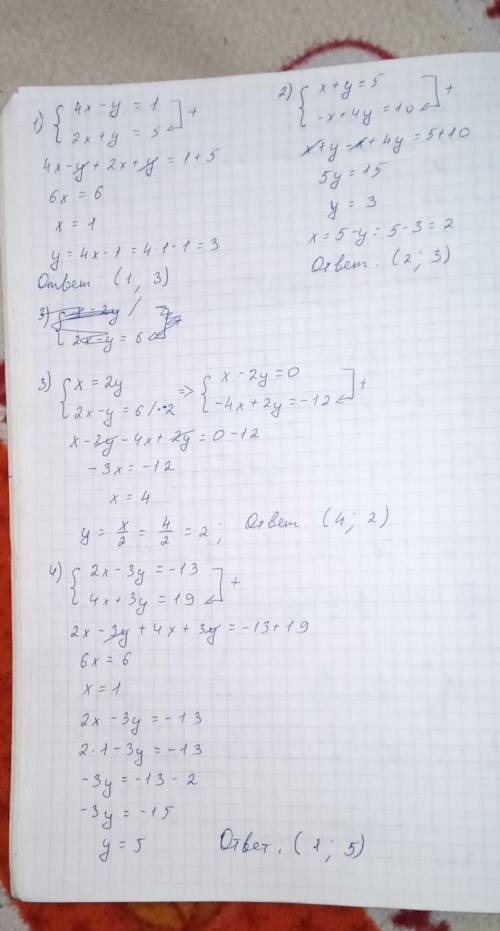 1) { 4x - y = 1
2x + y = 5 ] +
4x - y + 2x + y = 1 + 5
6x = 6
x = 1
y = 4x - 1 = 4·1 - 1 = 3
Ответ: (1; 3)
2) { x + y = 5
-x + 4y = 10 ] +
x + y - x + 4y = 5 + 10
5y = 15
y = 3
x = 5 - y = 5 - 3 = 2
Ответ: (2; 3)
3) { x - 2y /
2x - y = 6
3) { x = 2y
2x - y = 6 /·-2
=> { x - 2y = 0
-4x + 2y = -12 ] +
x - 2y - 4x + 2y = 0 - 12
-3x = -12
x = 4
y = x/2 = 4/2 = 2; Ответ (4; 2)
4) { 2x - 3y = -13
4x + 3y = 19 ] +
2x - 3y + 4x + 3y = -13 + 19
6x = 6
x = 1
2x - 3y = -13
2·1 - 3y = -13
-3y = -13 - 2
-3y = -15
y = 5 Ответ: (1; 5)